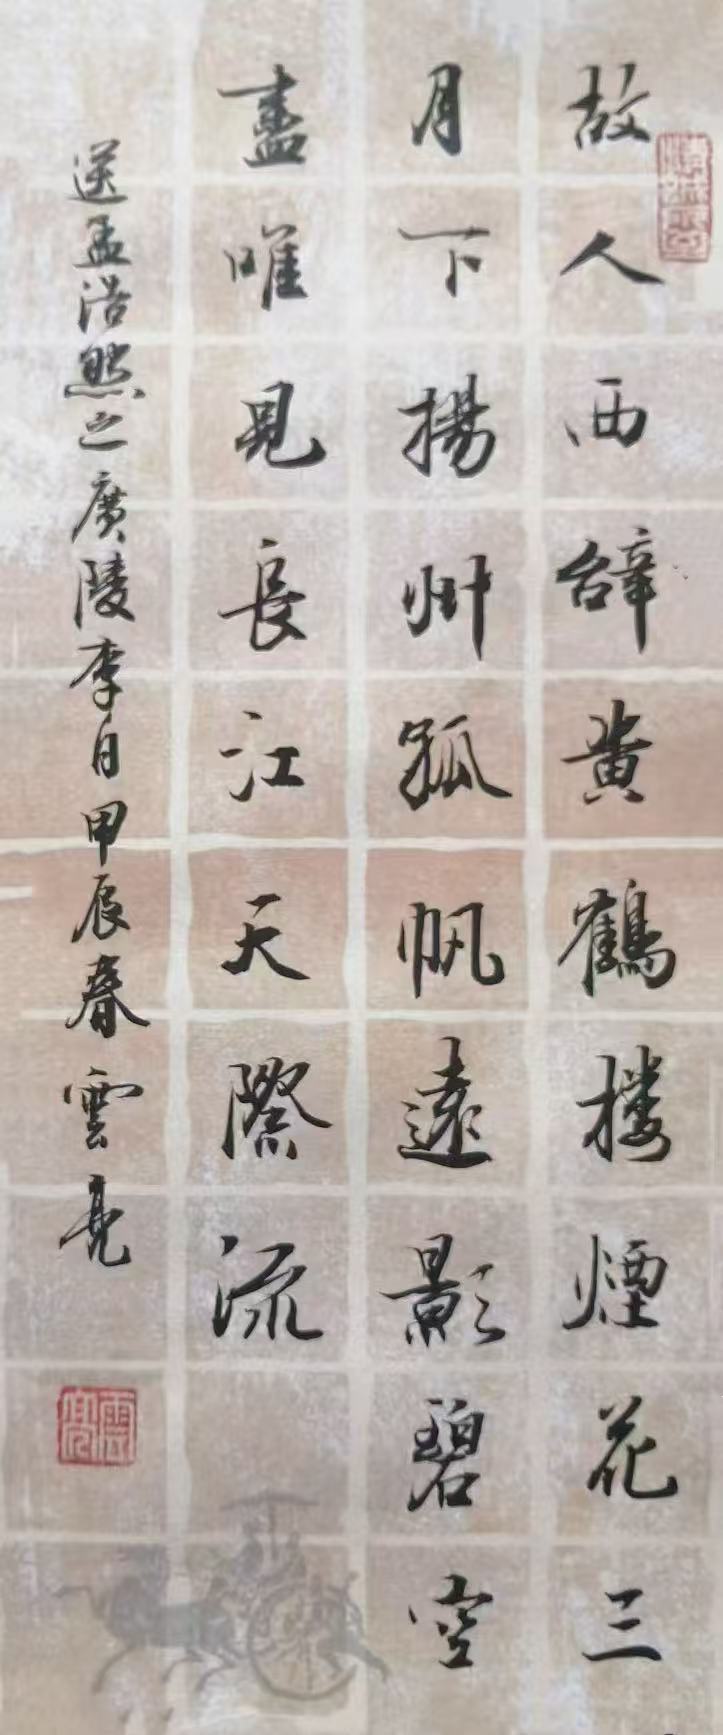 故人西辞黄鶴楼煙花三
月下揚州孤帆遠影碧空
盡唯見長江天際流
送孟浩然之廣陵李白甲辰春雲亮
雲亮